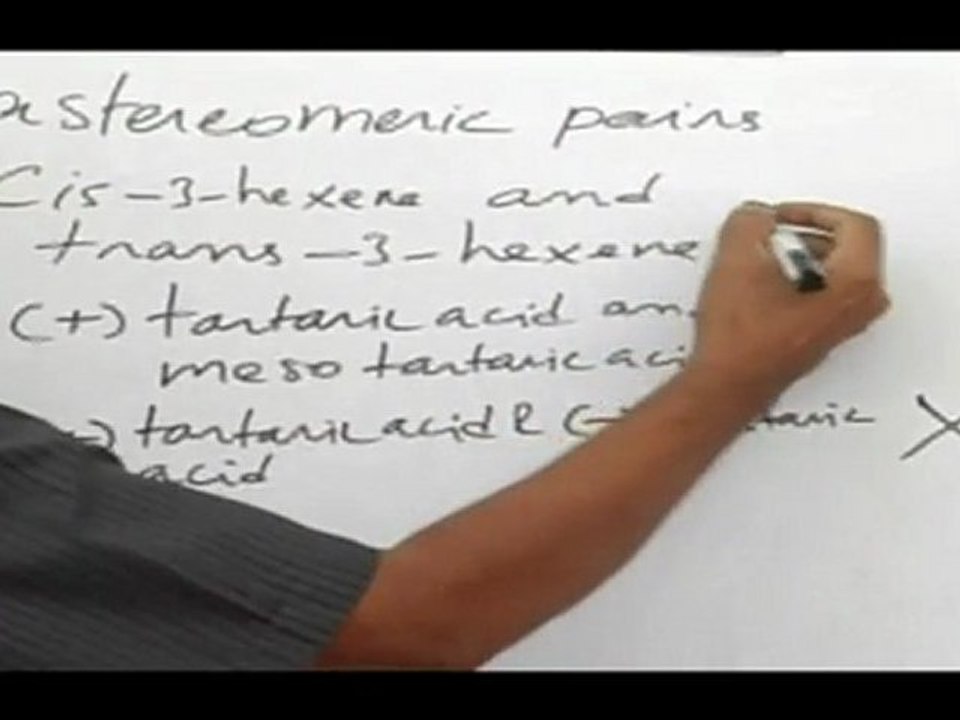 astereomeric pairs
Cis-3-hexene and
trans-3-hexene
(+) tartaric acid an
meso tartaric aci
-) tartaric acid & (-
taric X
acid